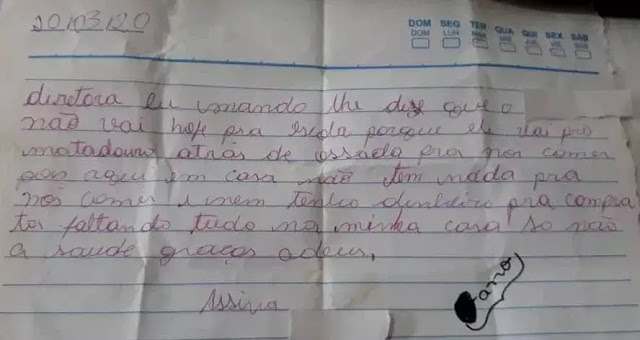 20/03/20
DOM SEG TER QUA QUI SEX SAB
DOM LUN MAR MIE JUE VIE SAB
diretora eu mando lhe dize que o
não vai hoje pra iscola porque ele vai pro
matadouro atrás de ossada pra nos comer
pois aqui em casa não tem nada pra
nos comer e nem tenho dinheiro pra compra
ta faltando tudo na minha casa so não
a saude graças adeus,
Assina